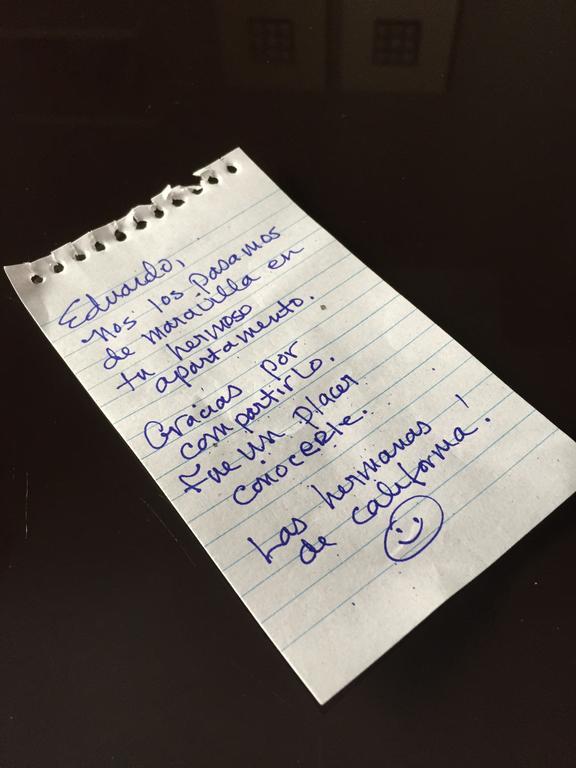 Eduardo,
Nos los pasamos
de maravilla en
tu hermoso
apartamento.
Gracias por
compartirlo.
Fue un placer
conocerle.
Las hermanas
de California!